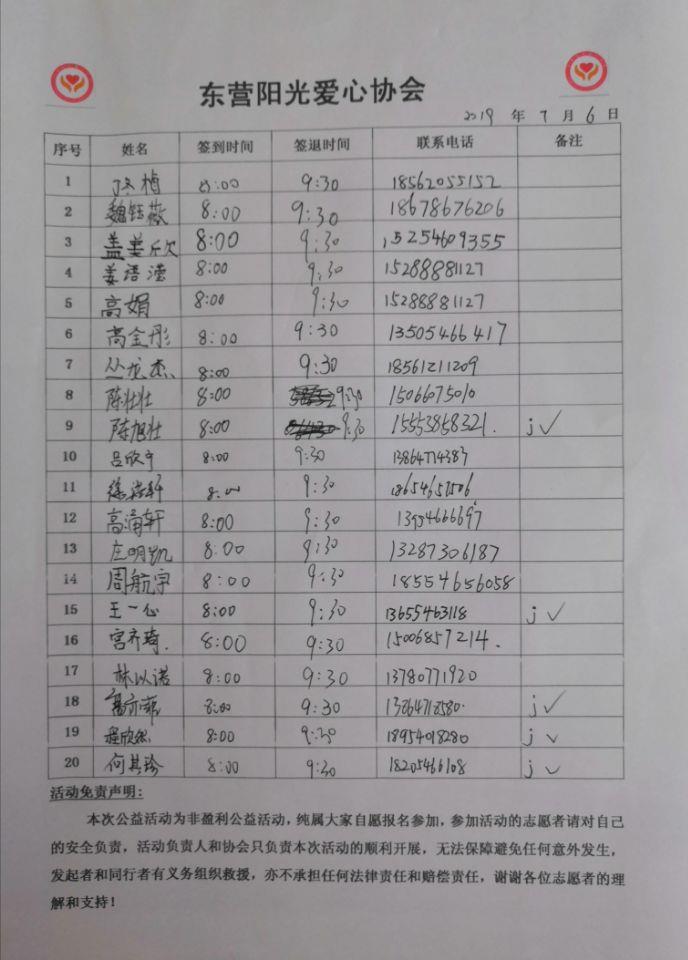 东营阳光爱心协会
2019 年 7 月 6 日
序号 姓名 签到时间 签退时间 联系电话 备注
1 8:00 9:30 18562055152
2 魏钰薇 8:00 9:30 18678676206
3 盖姜欣 8:00 9:30 15254609355
4 姜语潼 8:00 9:30 15288881127
5 高娟 8:00 9:30 15288881127
6 高金彤 8:00 9:30 13505466417
7 丛龙杰 8:00 9:30 18561211209
8 陈壮壮 8:00 9:30 15066075010
9 陈旭壮 8:00 9:30 15553858321. j ✓
10 吕欣宁 8:00 9:30 13864774387
11 8:00 9:30
12 高涌轩 8:00 9:30
13 庄明凯 8:00 9:30 13287306187
14 周航宇 8:00 9:30 18554656058
15 王一心 8:00 9:30 13655463118 j ✓
16 宫齐琦. 8:00 9:30 15006857214.
17 林以诺 8:00 9:30 13780771920
18 8:00 9:30 j ✓
19 程欣然 8:00 9:30 18954018280 j ✓
20 何其珍 8:00 9:30 18205466108 j ✓
活动免责声明:
本次公益活动为非盈利公益活动，纯属大家自愿报名参加，参加活动的志愿者请对自己
的安全负责，活动负责人和协会只负责本次活动的顺利开展，无法保障避免任何意外发生，
发起者和同行者有义务组织救援，亦不承担任何法律责任和赔偿责任，谢谢各位志愿者的理
解和支持！